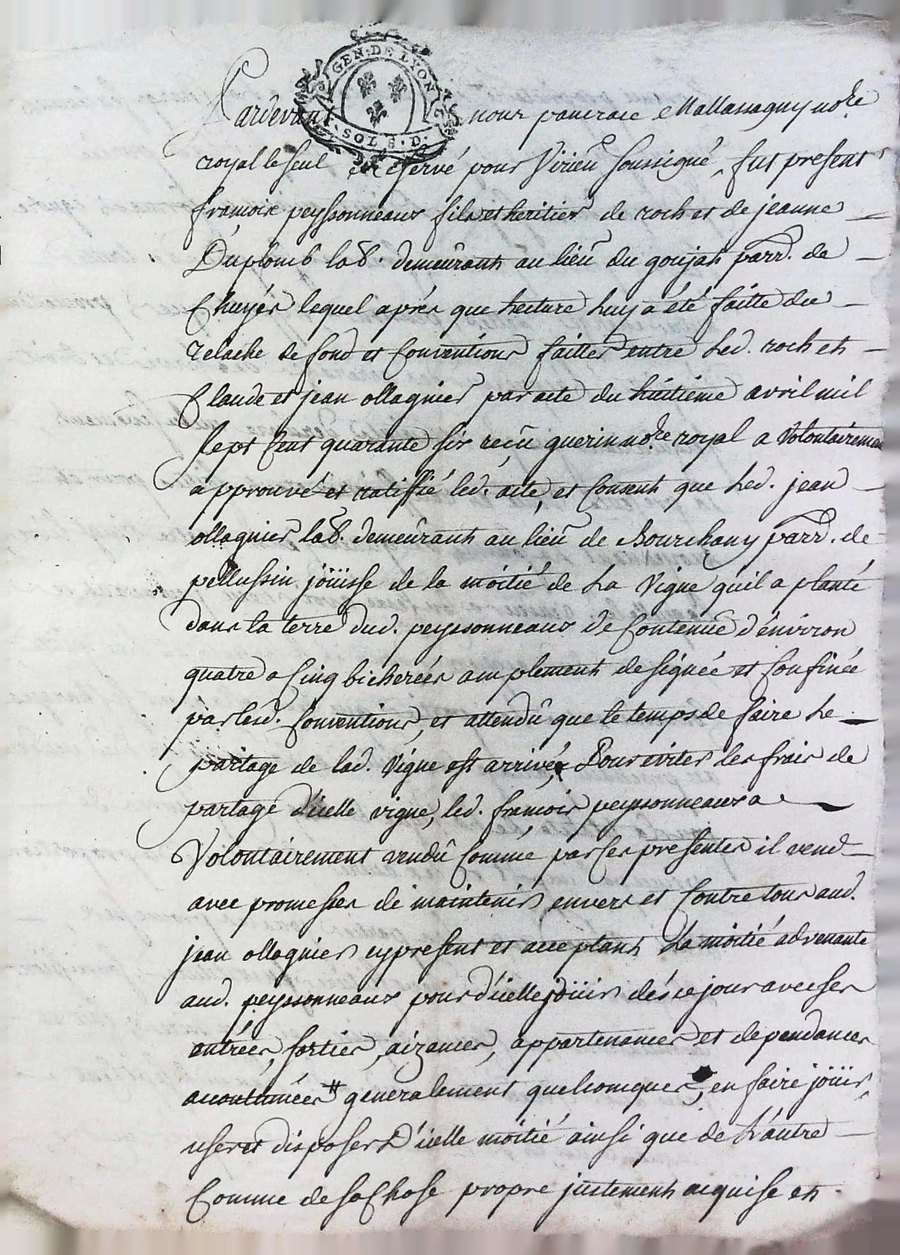 GEN. DE LYON
SOLS. D.
Pardevant nous pancrace Mallassagny no.re
royal le seul reservé pour Virieu soussigné, fut present
françois peyssonneaux fils et heritier de roch et de jeanne
Duplomb lab.r demeurant au lieu du goujat parr. de
Chuyer lequel aprés que lecture luy a été faitte du
relache de fond et Conventions faittes entre led. roch et
Claude et jean ollagnier par acte du huitième avril mil
sept cent quarante six reçu guerin no.re royal a volontairement
approuvé et ratiffié led. acte, et Consent que led. jean
ollagnier lab.r demeurant au lieu de Bourchany parr. de
pellussin joüisse de la moitié de La vigne quil a planté
dans la terre dud. peyssonneaux de Contenue d'environ
quatre a Cinq bicherées amplement designée et Confinée
par lesd. Conventions, et attendû que le temps de faire Le
partage de lad. vigne est arrivé, Pour eviter les frais de
partage d'icelle vigne, led. françois peyssonneaux a
Volontairement vendû comme par ces presentes il vend
avec promesses de maintenir envers et Contre tous aud.
jean ollagnier cy present et acceptant La moitié advenante
aud. peyssonneaux pour d'icelle joüir dés ce jour avec ses
entrées, sorties, aizances, appartenances et dependances
acoutumées # generalement quelconques, en faire joüir
user et disposer D'icelle moitié ainsi que de L'autre
Comme de sa Chose propre justement acquise et